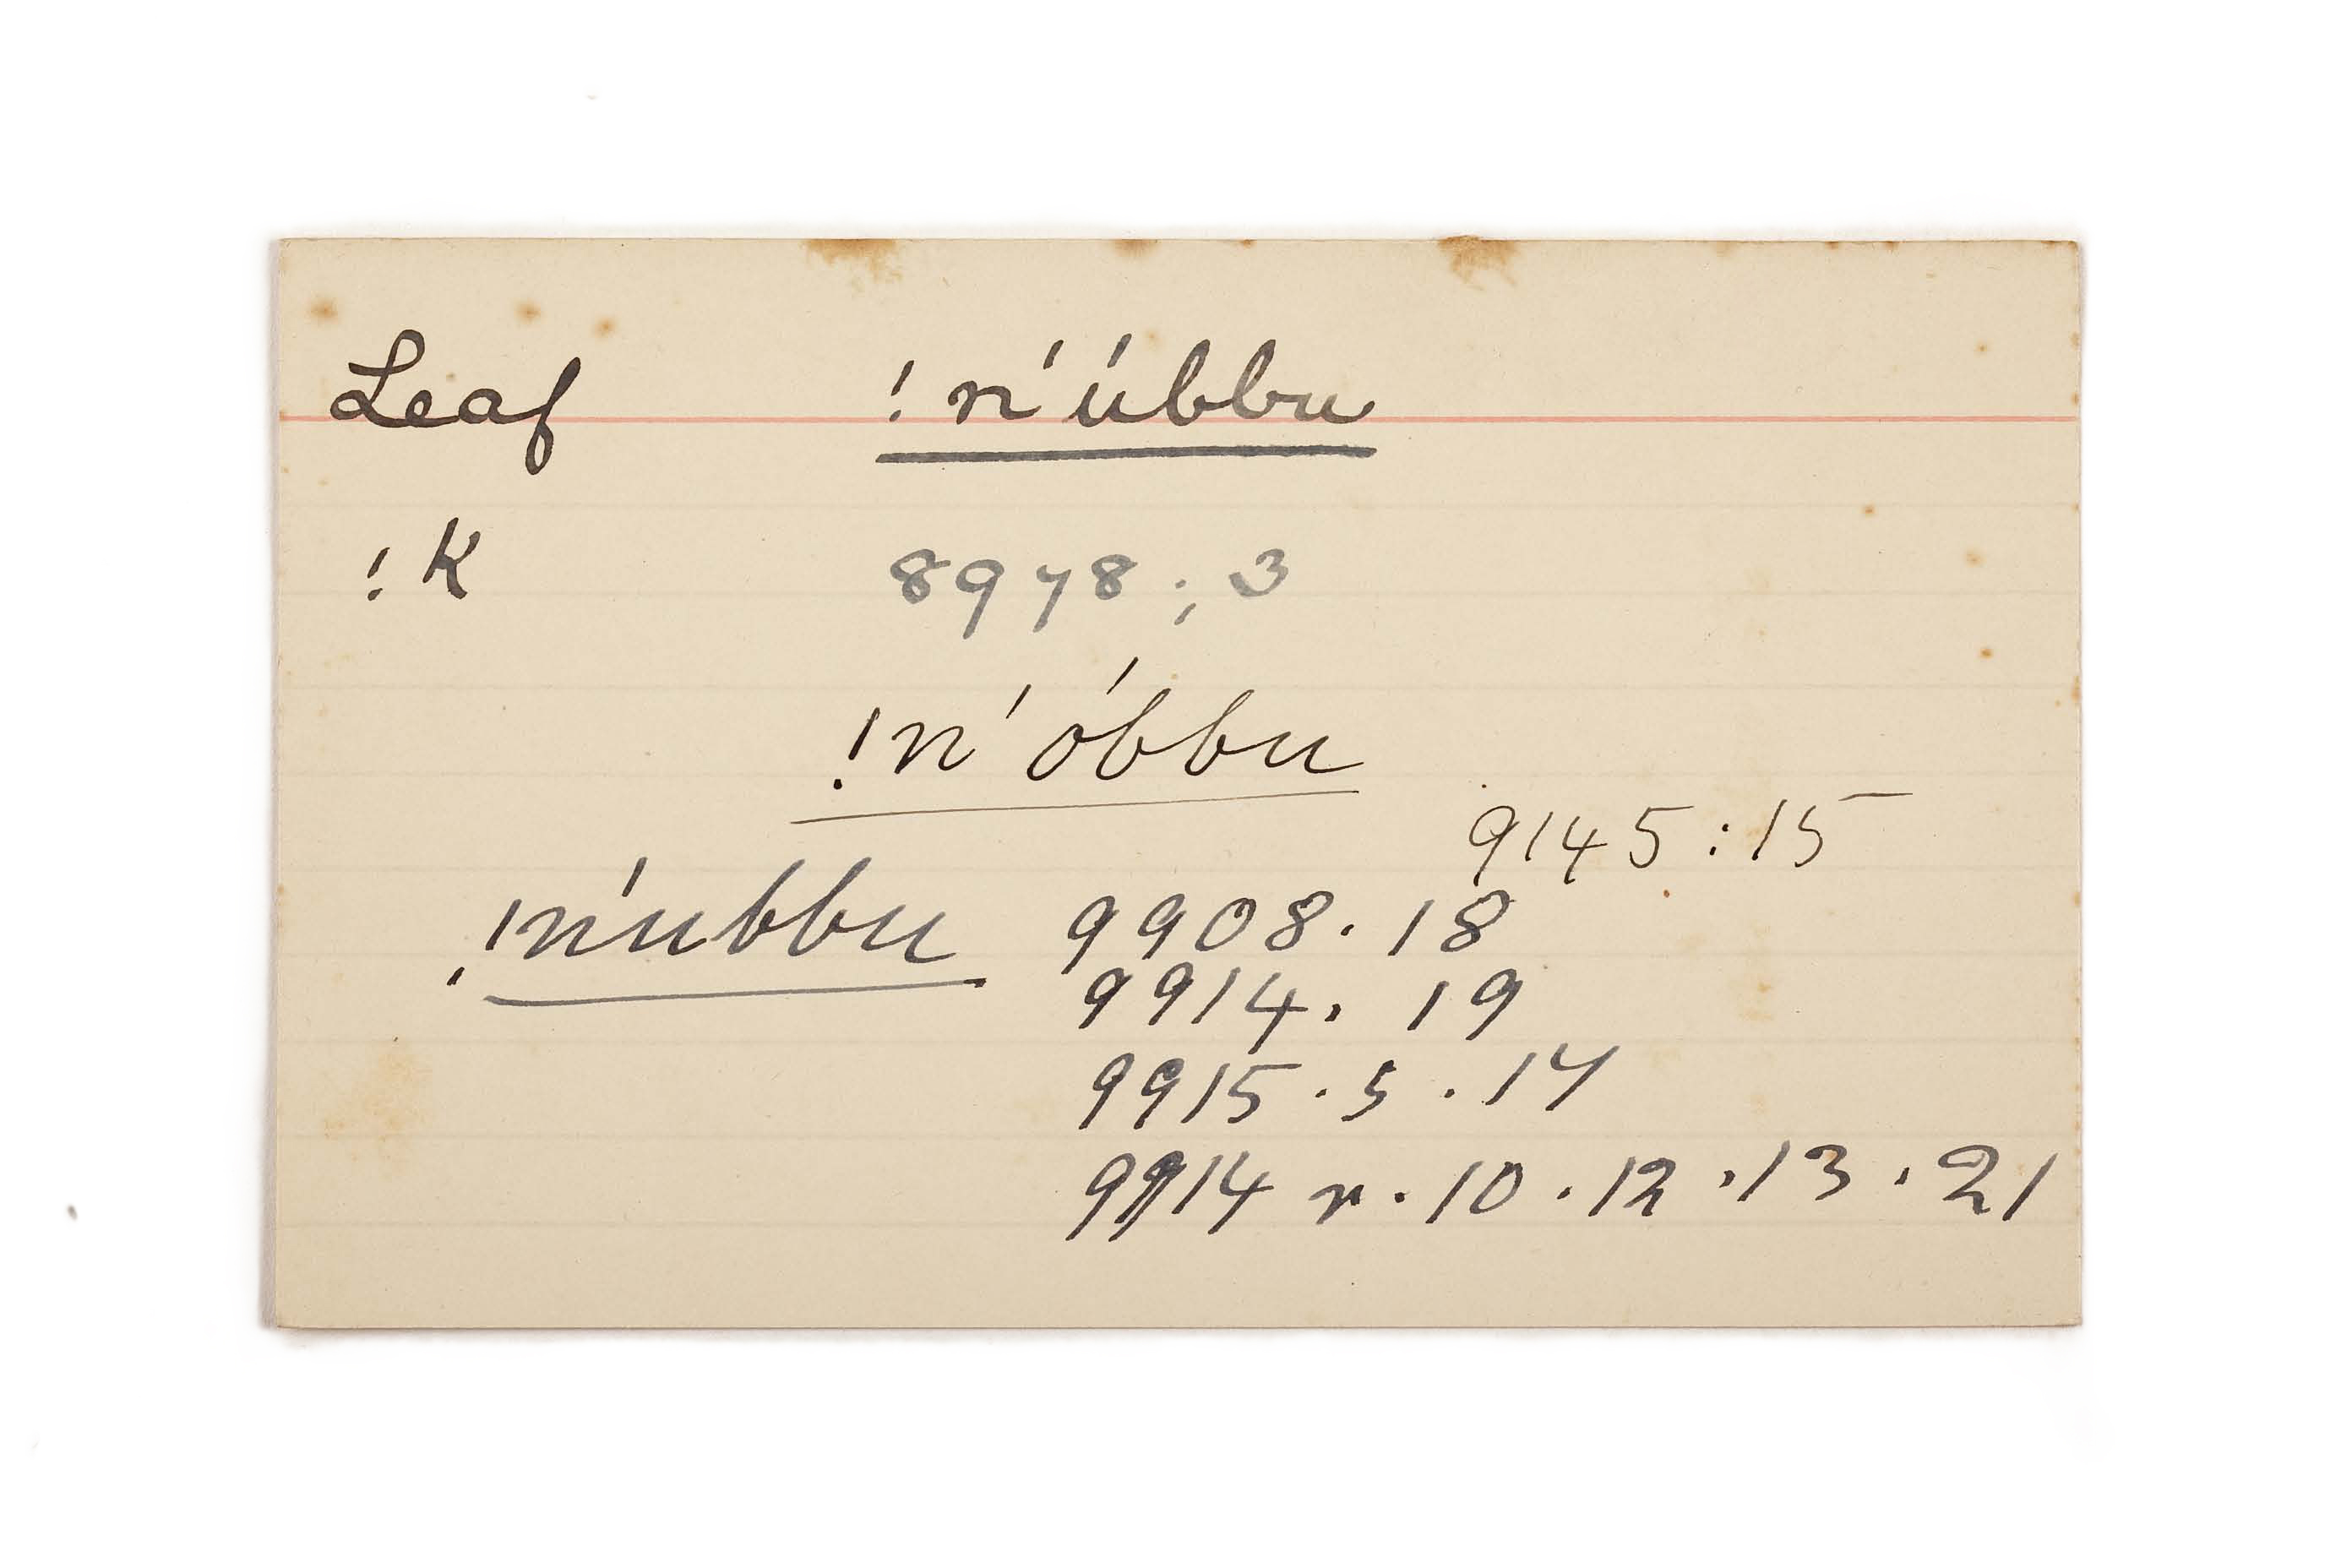 Leaf !n'úbbu
!K 8978 ; 3
!n'óbbu
9145 : 15
!n'ubbu 9908 . 18
9914 . 19
9915 . 5 . 17
9914 r . 10 . 12 . 13 . 21